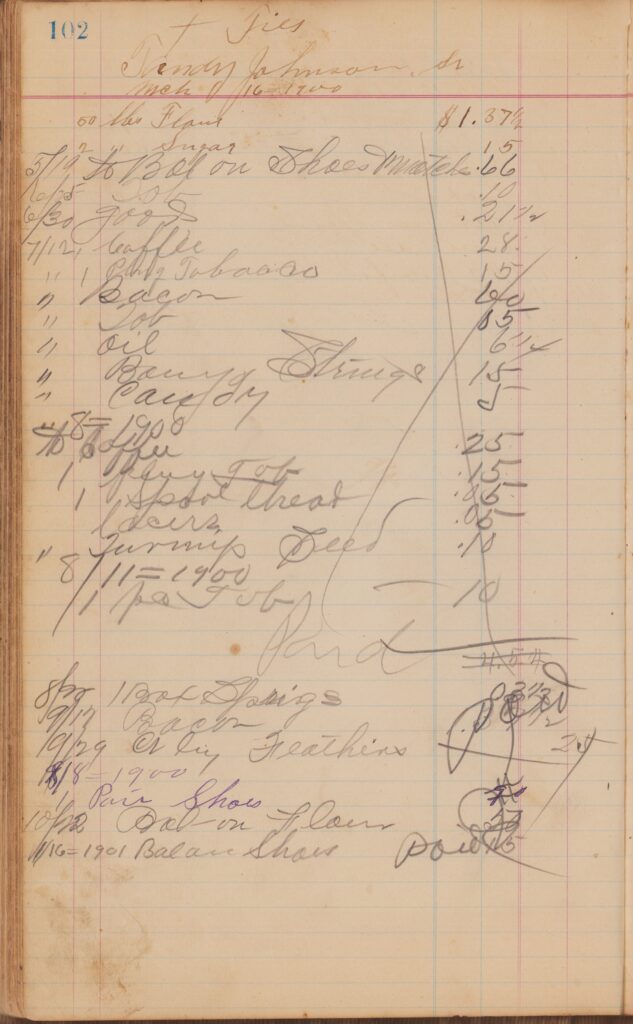 102
Johnson, Sr
Mch 16 = 1900
50 lbs Flour $1.37½
2 " Sugar 15
5/19 to Bal on Shoes .66
6/25 Tob .10
6/30 goods .21½
7/12, Coffee 28
" 1 Plug Tobacco 15
" Bacon 60
" Tob 05
" Oil 6¼
" Strings 15
" Candy 5
8 = 1900
Coffee .25
1 Plug Tob .15
1 Spool thread .05
lacers .05
" Turnip Seed .10
8/11 = 1900
1 pc Tob 10
Paid
4.54
1 Box
9/12 Bacon
Feathers 25
8 = 1900
1 Pair Shoes
10/22 Bal on Flour
1/16 = 1901 Balan Shoes Paid 15